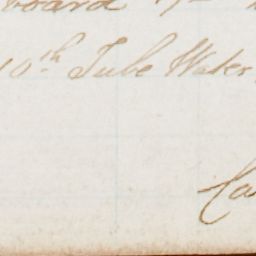 board
10th Tube Water
Ca